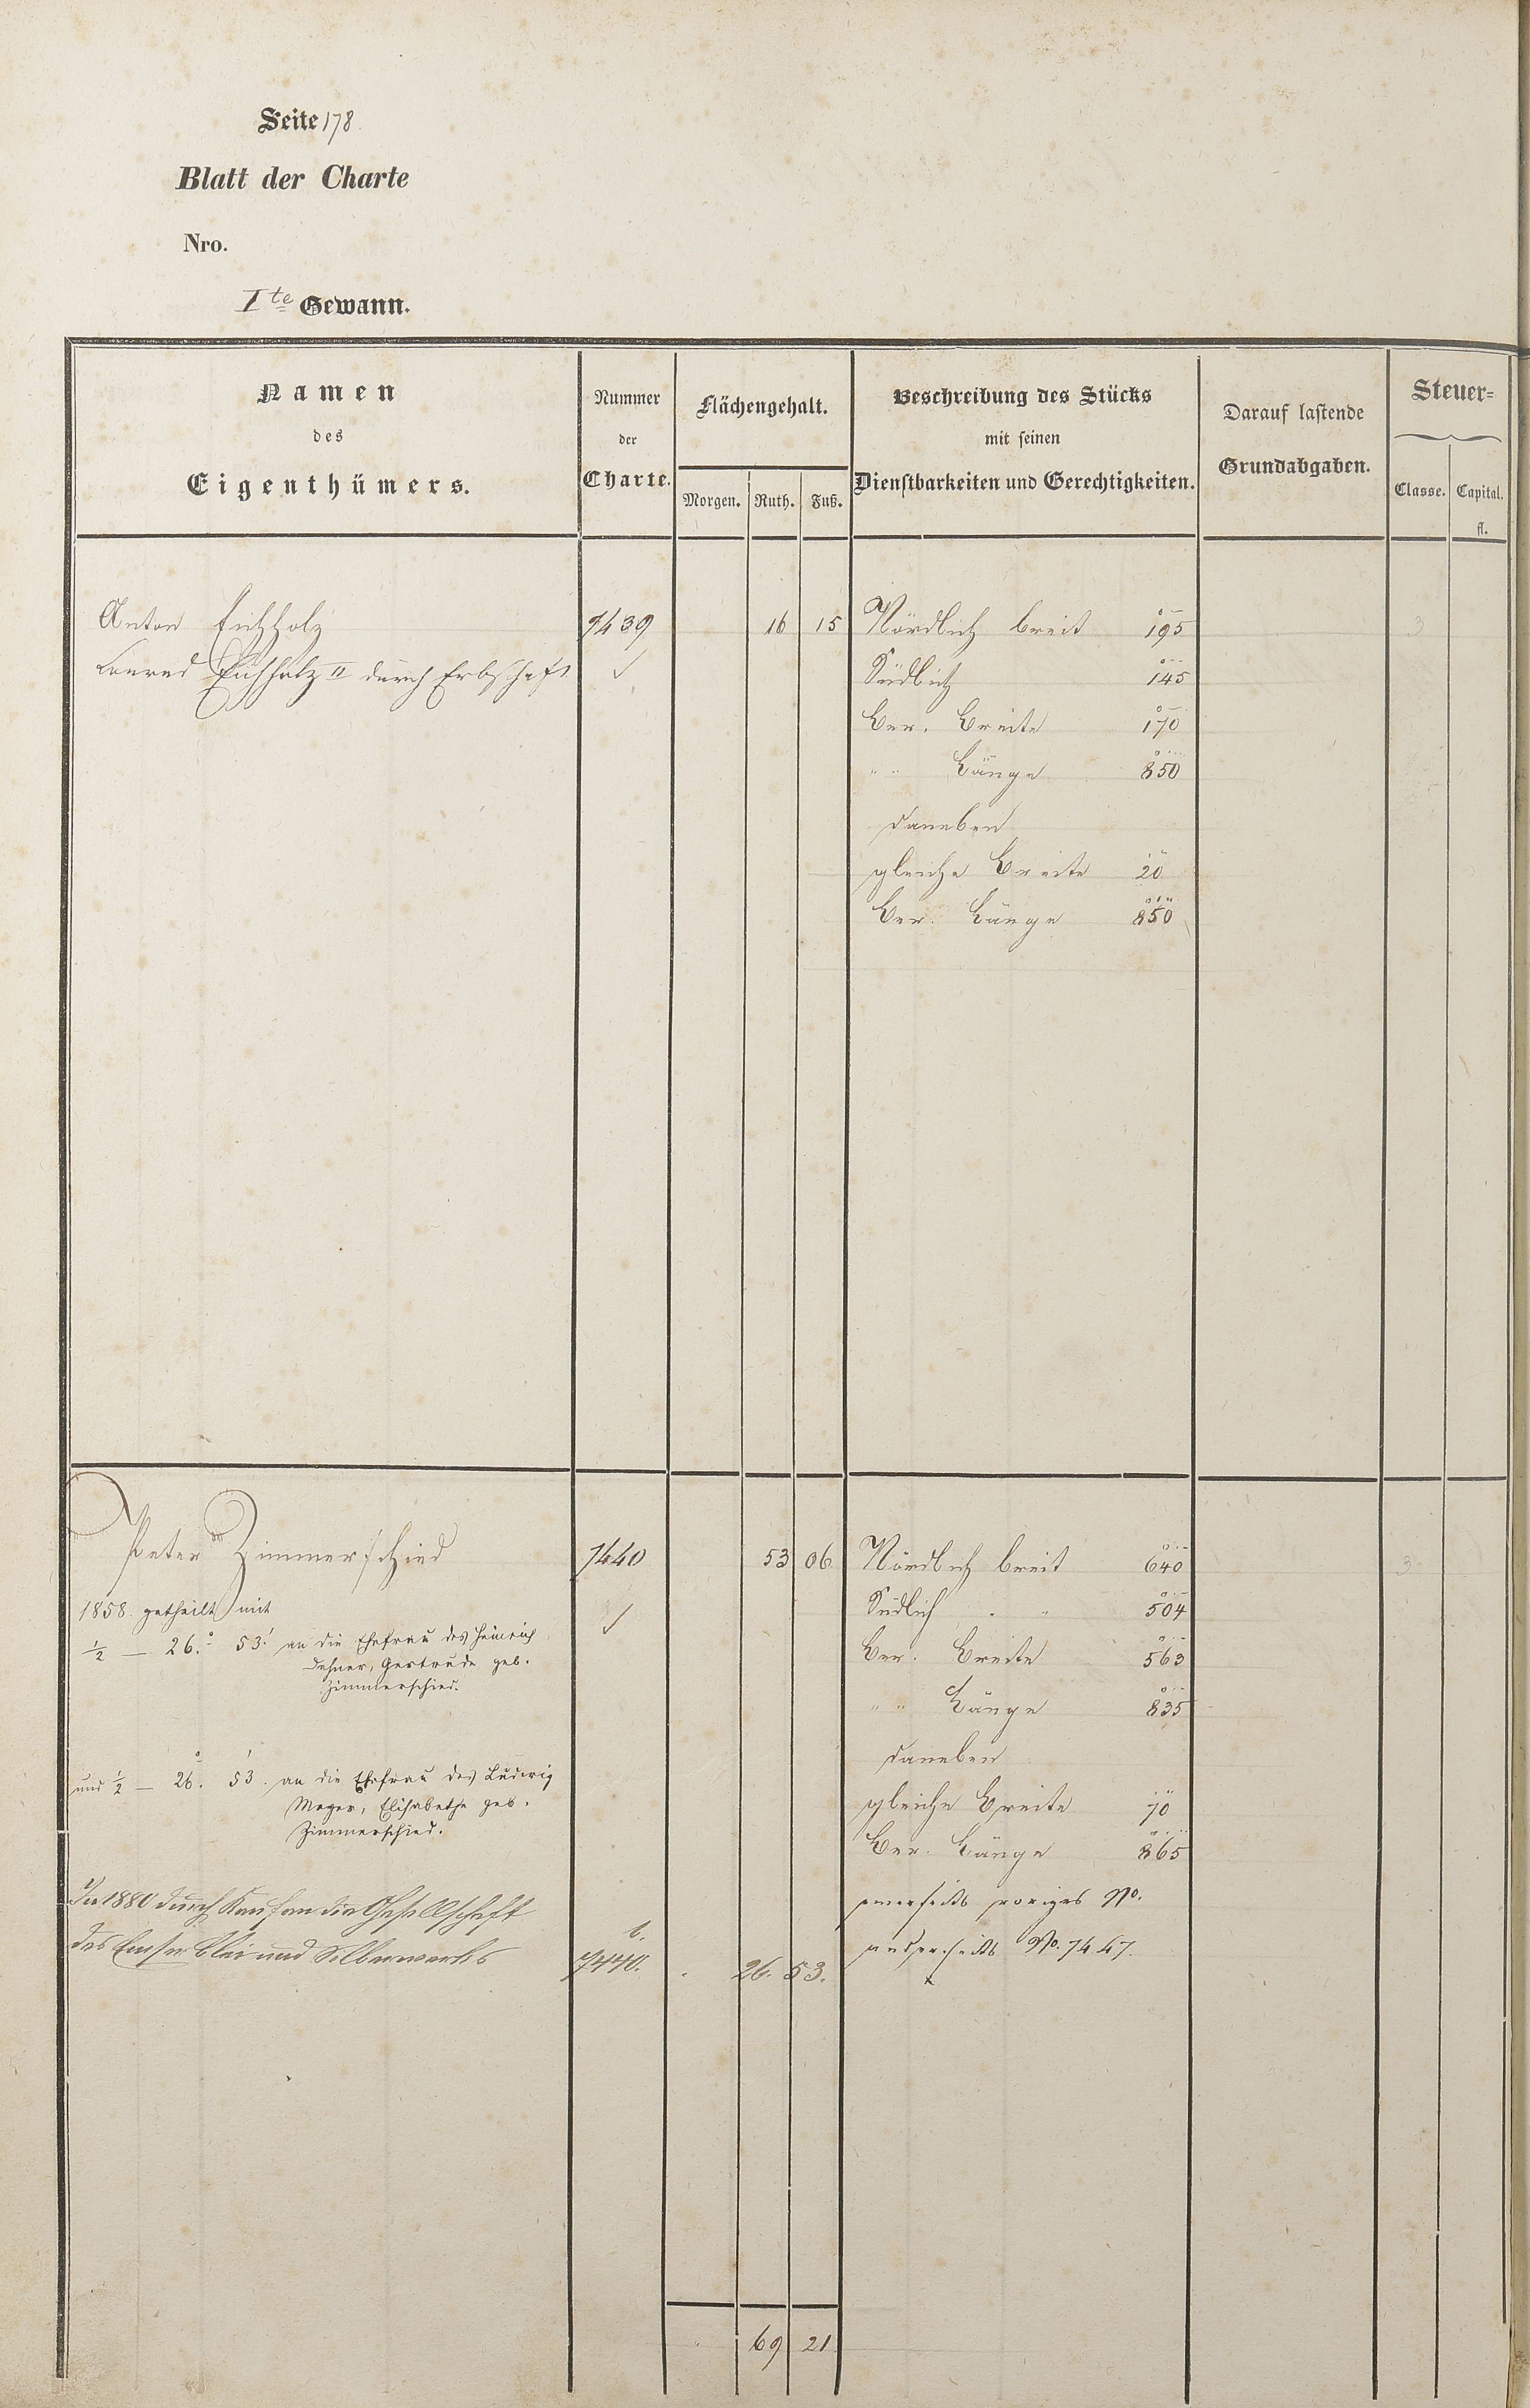 Seite 178
Blatt der Charte
Nro.
Ite Gewann.
Namen des Eigenthümers.
Nummer der Charte.
Flächengehalt.
Morgen. Ruth. Fuß.
Beschreibung des Stücks mit seinen Dienstbarkeiten und Gerechtigkeiten.
Darauf lastende Grundabgaben.
Steuer=
Classe. Capital. fl.
Anton Eichholz 7439 16 15 Nördlich breit 195 3
Conrad Eichholz II durch Erbschaft ✓ Südlich 145
Ber. Breite 170
" " Länge 850
daneben
gleiche Breite 20
Ber. Länge 850
Peter Zimmerschied 7440 53 06 Nördlich breit 640 3
1858 getheilt mit ✓ Südlich " " 504
½ — 26.° 53.' an die Ehefrau des Heinrich Ber. Breite 563
Dehner, Gertrude geb.
Zimmerschied. " " Länge 835
daneben
und ½ — 26.° 53.' an die Ehefrau des Ludwig
Meyer, Elisabethe geb. gleiche Breite 70
Zimmerschied.
Ber. Länge 865
In 1880 durch Kauf an die Gesellschaft einerseits voriges No.
des Emser Blei und Silberwerks b. 7440. 26. 53. anderseits No. 7447.
69 21